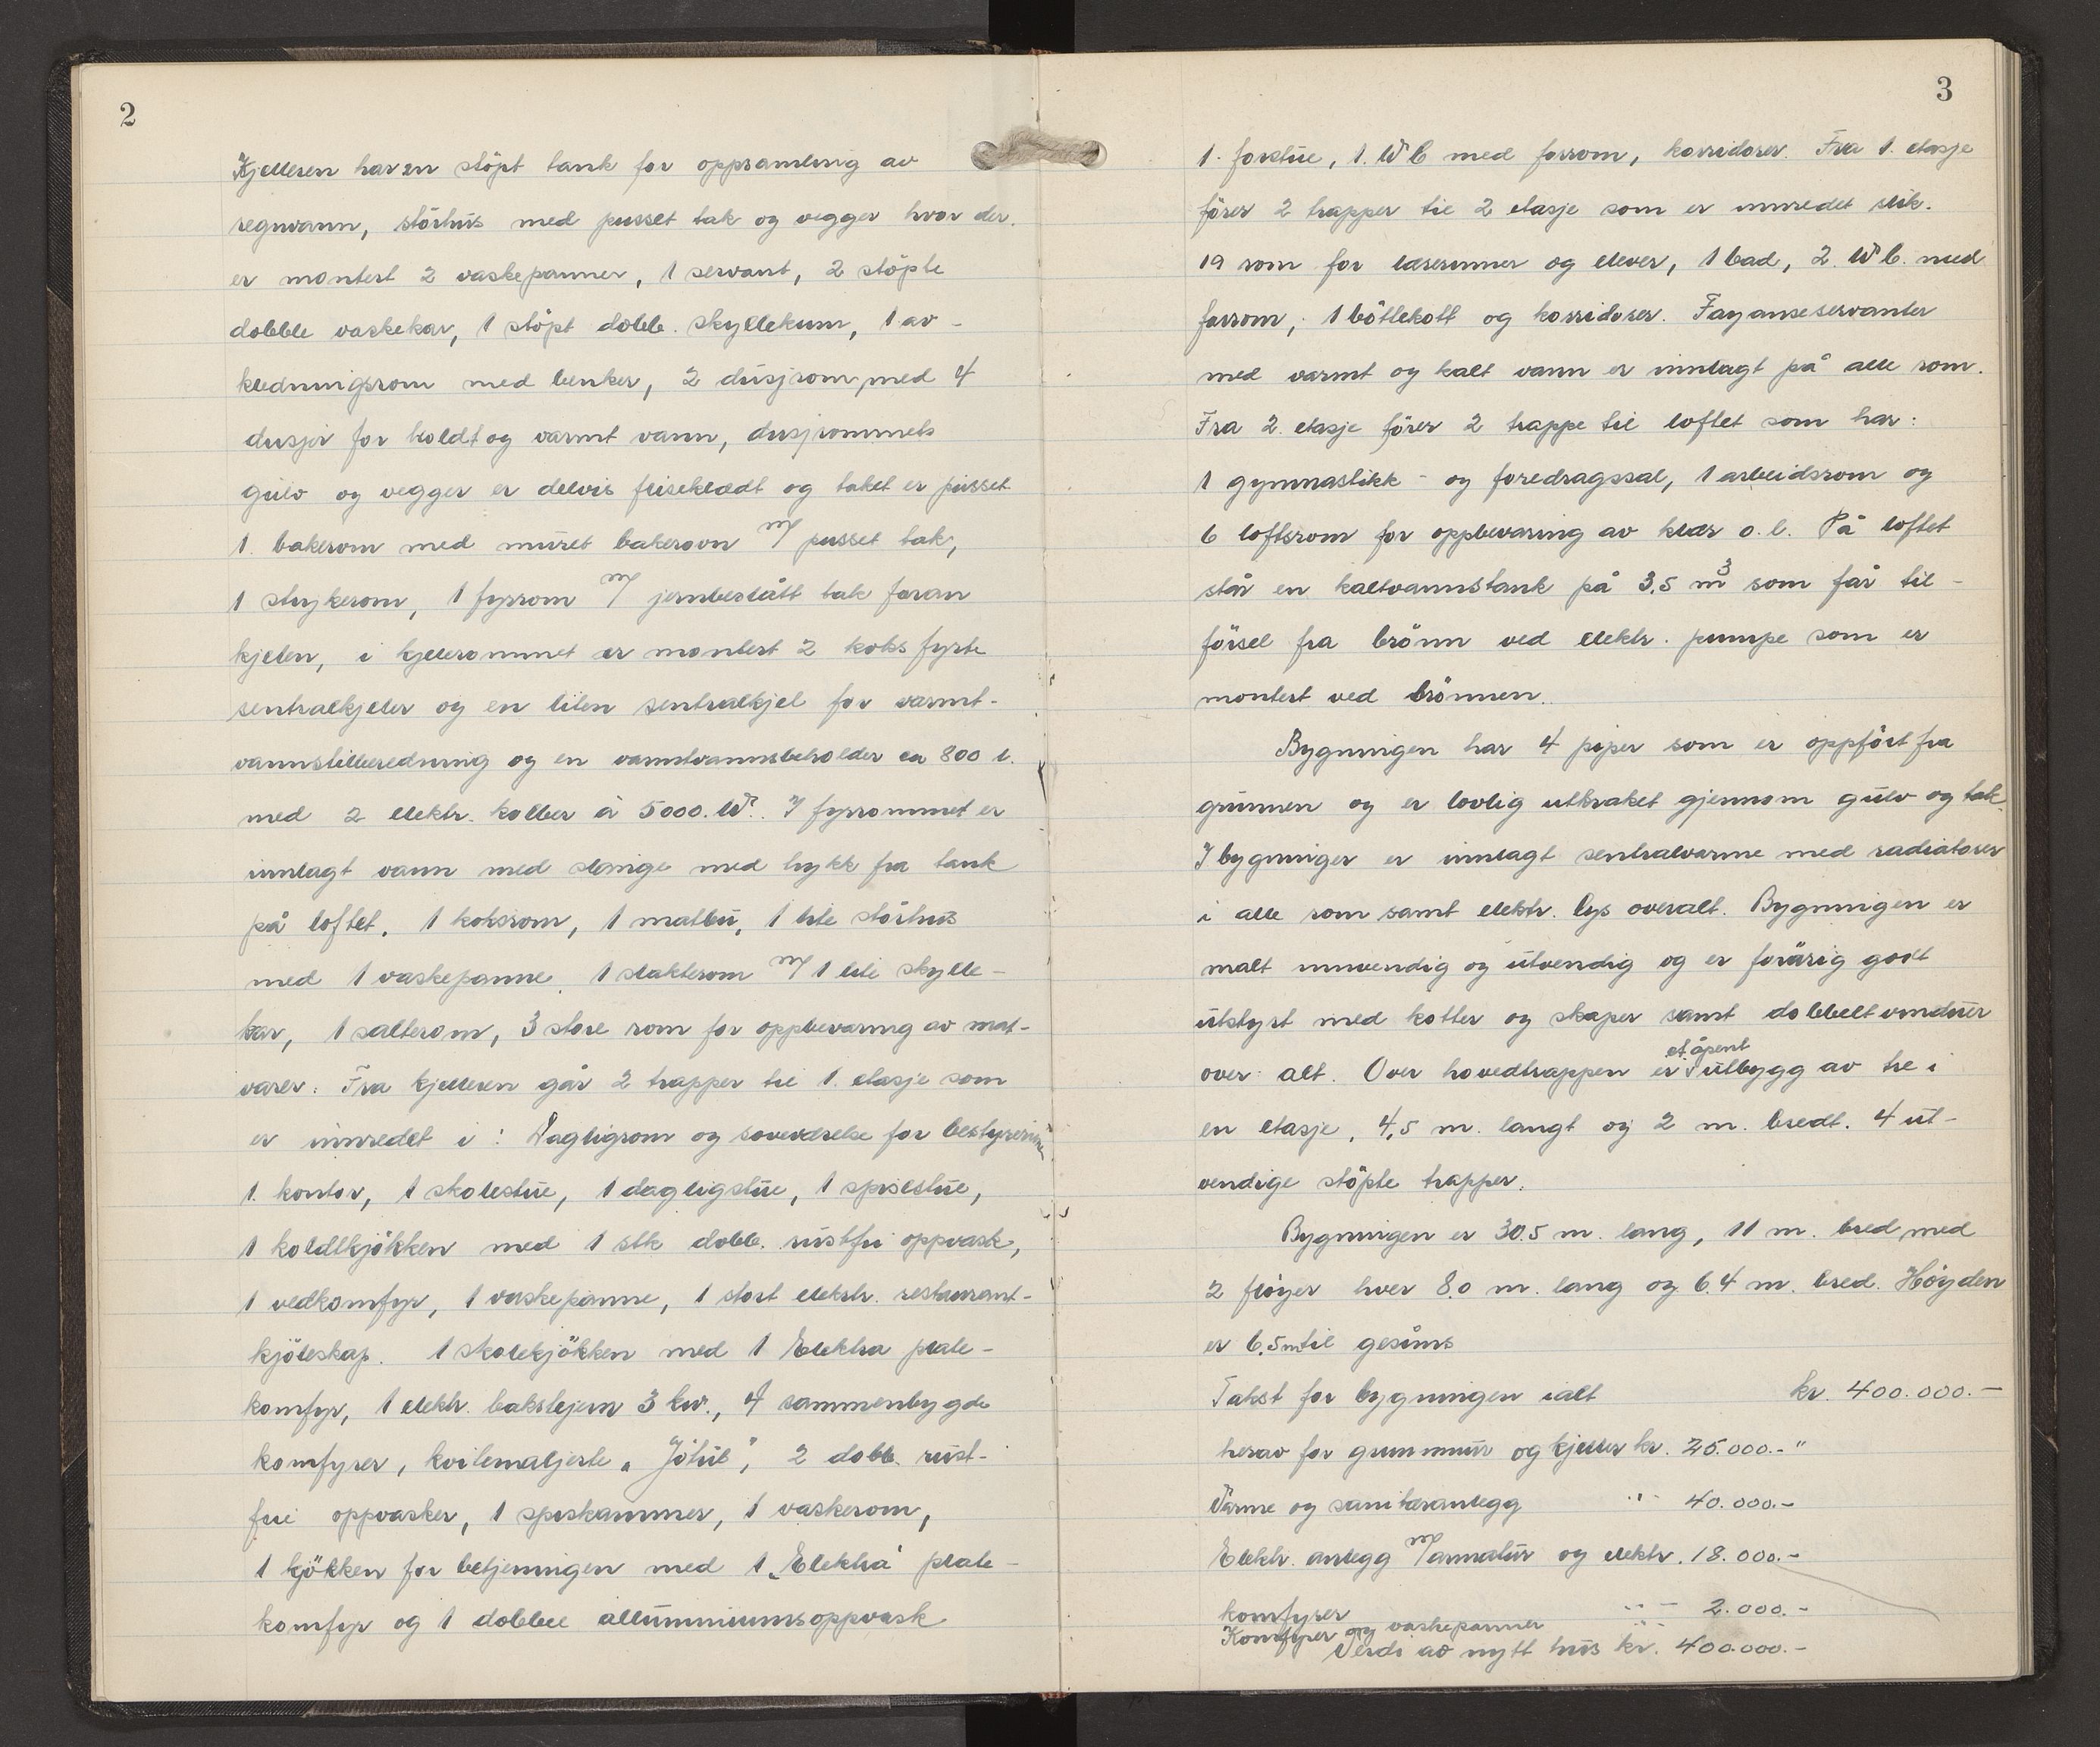 2
Kjelleren har en stöpt tank for oppsamling av
regnvann, störhus med pusset tak og vegger hvor der.
er montert 2 vaskepanner, 1 servant, 2 stöpte
dobble vaskekar, 1 stöpt dobb. skyllekum, 1 av-
kledningsrom med benker, 2 dusjrom med 4
dusjer for koldt og varmt vann, dusjrommets
gulv og vegger er delvis flisekledt og taket er pusset
1. bakerom med muret bakerovn m/ pusset tak,
1 strykerom, 1 fyrrom m/ jernbeslått tak foran
kjelen, i kjellerommet er montert 2 koks fyrte
sentralkjeler og en liten sentralkjel for varmt-
vannstilberedning og en varmtvannsbeholder ca 800 l.
med 2 elektr. kolber à 5000. W. I fyrrommet er
innlagt vann med slange med trykk fra tank
på loftet. 1 koksrom, 1 matbu, 1 lite störhus
med 1 vaskepanne. 1 slakterom m/ 1 lite skylle-
kar, 1 salterom, 3 store rom for oppbevaring av mat-
varer. Fra kjelleren går 2 trapper til 1. etasje som
er innredet i: Dagligrom og soveværelse for bestyrerinne
1. kontor, 1 skolestue, 1 dagligstue, 1 spisestue,
1 koldtkjökken med 1 stk dobb. rustfri oppvask,
1 vedkomfyr, 1 vaskepanne, 1 stort elektr. restaurant-
kjöleskap. 1 skolekjökken med 1 Elektra plate-
komfyr, 1 elektr. bakstejern 3 kw., 4 sammenbygde
komfyrer, hvitemaljerte "Jötul", 2 dobb. rust-
frie oppvasker, 1 spiskammer, 1 vaskerom,
1 kjökken for betjeningen med 1 "Elektra" plate-
komfyr og 1 dobbel allumniumsoppvask
3
1. forstue, 1. W C med forrom, korridorer. Fra 1. etasje
förer 2 trapper til 2 etasje som er innredet slik.
19 rom for lærerinner og elever, 1 bad, 2. W C. med
forrom, 1 böttekott og korridorer. Fayanseservanter
med varmt og kalt vann er innlagt på alle rom.
Fra 2. etasje förer 2 trappe til loftet som har:
1 gymnastikk- og foredragssal, 1 arbeidsrom og
6 loftsrom for oppbevaring av klær o.l. På loftet
står en kaltvannstank på 3,5 m3 som får til-
försel fra brönn ved elektr. pumpe som er
montert ved brönnen.
Bygningen har 4 piper som er oppfört fra
grunnen og er lovlig utkraket gjennom gulv og tak.
I bygninger er innlagt sentralvarme med radiatorer
i alle rom samt elektr. lys overalt. Bygningen er
malt innvendig og utvendig og er forövrig godt
utstyrt med kotter og skaper samt dobbelt vinduer
over alt. Over hovedtrappen er et åpent utbygg av tre i
en etasje, 4,5 m. langt og 2 m. bredt. 4 ut-
vendige stöpte trapper.
Bygningen er 30.5 m. lang, 11 m. bred med
2 flöyer hver 8.0 m. lang og 6.4 m. bred. Höyden
er 6.5 m til gesims
Takst for bygningen ialt kr. 400.000.-
herav for grunnmur og kjeller kr. 25.000.- "
Varme og saniteranlegg " 40.000.-
Elektr. anlegg m/armatur og elektr. 18.000.-
komfyrer
Komfyrer og vaskepanner " 2.000.-
Verdi av nytt hus kr. 400.000.-